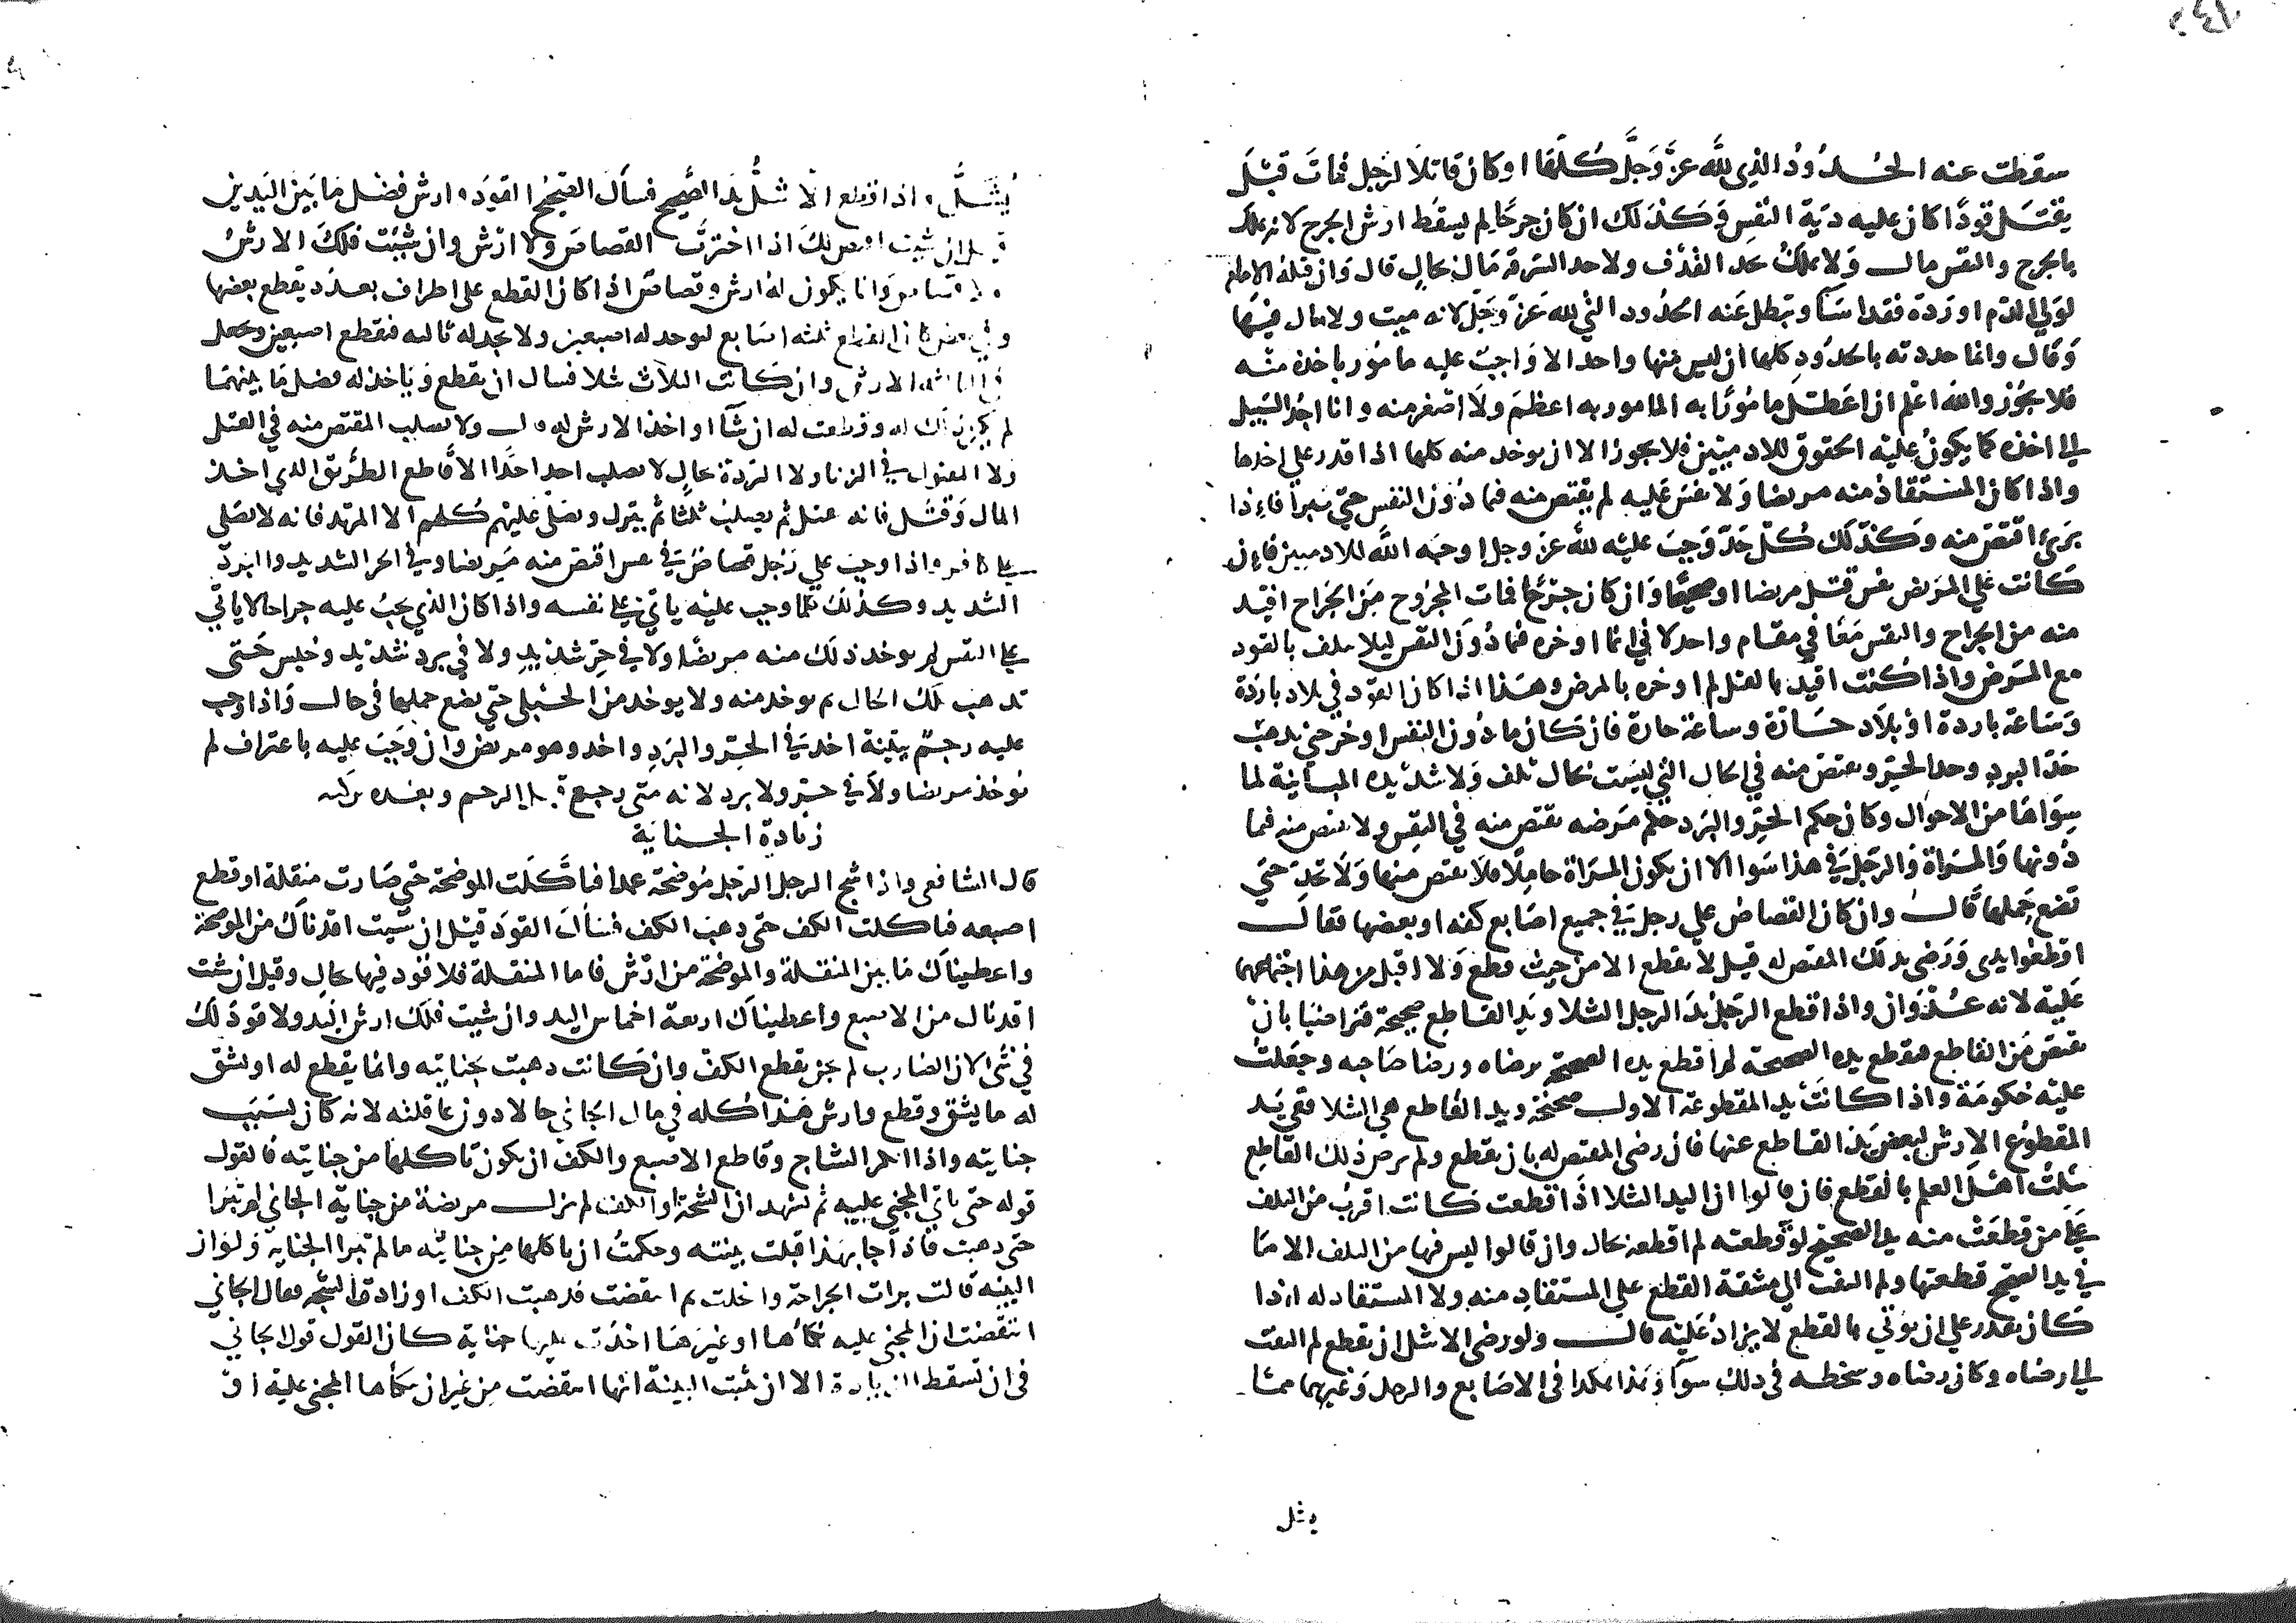 سقطت عنه الحدود الذي لله عز وجل كلها او كان قاتلا لرجل فمات قبل
يقتل قودا كان عليه دية النفس وكذلك ان كان جرحا لم يسقط ارش الجرح لانه يملك
بالجرح والنفس مال ولا يملك بحد القذف ولا حد السرقة مال بحال قال وان قتله الامام
لولي الدم او ردة فقد اسا وتبطل عنه الحدود التي لله عز وجل لانه ميت ولا مال فيها
وقال وانما حددته بالحدود كلها ان ليس منها واحد الا واجب عليه مامور باخذه منه
فلا يجوز والله اعلم ان اعطل مامورا به المامور به اعظم ولا اصغر منه وانا اجد السبيل
الي اخذه كما يكون عليه الحقوق للادميين فلا يجوز الا ان يوخد منه كلها اذا قدر علي اخدها
واذا كان المستقاد منه مريضا ولا نفس عليه لم يقتص منه فيما دون النفس حتي يبرا فاذا
بري اقتص منه وكذلك كل حد وجب عليه لله عز وجل اوجبه الله للادميين فان
كانت علي المريض نفس قتل مريضا او صحيحا وان كان جرح جرحا فمات المجروح من الجراح اقيد
منه من الجراح والنفس معا في مقام واحد لاني انما اوخره فيما دون النفس ليلا يتلف بالقود
مع المرض واذا كنت اقيد بالقتل لم اوخره بالمرض وهذا اذا كان القود في بلاد باردة
وساعة باردة او بلاد حارة وساعة حارة فان كان ما دون النفس اوخر حتي يدهب
حد البرد وحد الحر ويقتص منه في الحال التي ليست بحال تلف ولا شديدة المباينة لما
سواها من الاحوال وكان حكم الحر والبرد حكم مرضه يقتص منه في النفس ولا يقتص منه فيما
دونها والمراة والرجل في هذا سوا الا ان يكون المراة حاملا فلا يقتص منها ولا تحد حتي
تضع حملها قال وان كان القصاص علي رجل في جميع اصابع كفه او بعضها فقال
اقطعوا يدي ورضي بدلك المقتص له قيل لا يقطع الا من حيث قطع ولا اقبل من هذا اجتماعهما
عليه لانه عدوان واذا قطع الرجل يد الرجل الشلا ويد القاطع صحيحة فتراضيا بان
يقتص من القاطع فتقطع يده الصحيحة لم اقطع يده الصحيحة برضاه ورضا صاحبه وجعلت
عليه حكومة واذا كانت يد المقطوعة الاول صحيحة ويد القاطع هي الشلا ففي يد
المقطوع الارش لبعض يد القاطع عنها فان رضي المقتص له بان يقطع ولم يرض ذلك القاطع
سئلت اهل العلم بالقطع فان قالوا ان اليد الشلا اذا قطعت كانت اقرب من التلف
علي من قطعت منه يد الصحيح لو قطعته لم اقطعه بحال وان قالوا ليس فيها من التلف الا ما
في يد الصحيح قطعتها ولم التفت الي مشقة القطع علي المستقاد منه ولا المستقاد له اذا
كان يقدر علي ان يوتي بالقطع لا يزاد عليه قال ولو رضي الاشل ان يقطع لم التفت
الي رضاه وكان رضاه وسخطه في ذلك سوا وهذا هكذا في الاصابع والرجل وغيرهما مما
يشل
يشل واذا قطع الاشل يد الصحيح فسال الصحيح القود وارش فضل ما بين اليدين
قيل ان شيت اقتص لك اذا اخترت القصاص ولا ارش وان شيت فلك الارش
ولا قصاص وانما يكون له ارش وقصاص اذا كان القطع علي اطراف بعدد يقطع بعضها
فيقطع ثلثه اصابع فيوجد له اصبعين ولا يجد له ثالثه فنقطع اصبعين ونجعل
في الثالثه الارش وان كانت الثلاث شلا فسال ان يقطع وياخذ له فضل ما بينهما
لم يكن ذلك له وقطعت له ان شا او اخذ الارش له قال ولا يصلب المقتص منه في القتل
ولا المقتول في الزنا ولا الردة بحال لا يصلب احد احدا الا قاطع الطريق الدي اخذ
المال وقتل فانه يقتل ثم يصلب ثلثا ثم ينزل ويصلي عليهم كلهم الا المرتد فانه لا يصلي
علي كافر واذا وجب علي رجل قصاص في نفس اقتص منه مريضا وفي الحر الشديد والبرد
الشديد وكذلك كلما وجب عليه ياتي علي نفسه واذا كان الذي يجب عليه جراحا لا ياتي
علي النفس لم يوخد ذلك منه مريضا ولا في حر شديد ولا في برد شديد وحبس حتي
تدهب تلك الحال ثم يوخد منه ولا يوخد من الحبلي حتي يضع حملها في حال واذا وجب
عليه رجم ببينة اخد في الحر والبرد واخد وهو مريض وان وجب عليه باعتراف لم
يوخذ مريضا ولا في حر ولا برد لانه متي رجع قبل الرجم وبعده تركته
زيادة الجناية
قال الشافعي واذا شج الرجل الرجل موضحة عمدا فتاكلت الموضحة حتي صارت منقلة او قطع
اصبعه فتاكلت الكف حتي دهبت الكف فسال القود قيل ان شيت اقدناك من الموضحة
واعطيناك ما بين المنقلة والموضحة من ارش فاما المنقلة فلا قود فيها بحال وقيل ان شيت
اقدناك من الاصبع واعطيناك اربعة اخماس اليد وان شيت فلك ارش اليد ولا قود لك
في شي لان الضارب لم يجن بقطع الكف وان كانت دهبت بجنايته وانما يقطع له او يشق
له ما يشق وقطع وارش هذا كله في مال الجاني حالا دون عاقلته لانه كان بسبب
جنايته واذا انكر الشاج وقاطع الاصبع والكف ان يكون تاكلها من جنايته فالقول
قوله حتي ياتي المجني عليه ثم تشهد ان الشجة او الكف لم تزل مريضة من جناية الجاني لم تبرا
حتي دهبت فاذا جا بهذا قبلت بينته وحكمت ان تاكلها من جنايته ما لم تبرا الجناية ولو ان
البينه قالت برات الجراحة واجلبت ثم انتقضت فدهبت الكف او زادت الشجه فقال الجاني
انتقضت ان المجني عليه نكاها او غيرها احدث عليها جناية كان القول قول الجاني
في ان تسقط الزيادة الا ان تثبت البينة انها انتقضت من غير ان نكاها المجني عليه او